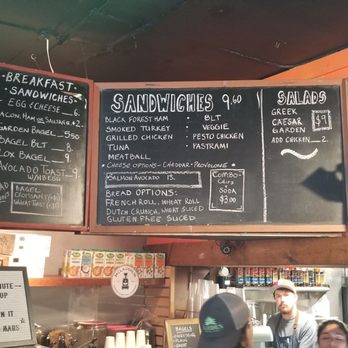 BREAKFAST
SANDWICHES
EGG & CHEESE 6.
BACON, HAM OR SAUSAGE +2.
GARDEN BAGEL 5.50
BAGEL BLT 8.
LOX BAGEL 9.
AVOCADO TOAST 9
BAGEL
CROISSANT
WHEAT TOAST
SANDWICHES 9.60
BLACK FOREST HAM
SMOKED TURKEY
GRILLED CHICKEN
TUNA
MEATBALL
• BLT
VEGGIE
• PESTO CHICKEN
• PASTRAMI
• CHEESE OPTIONS - CHEDDAR - PROVOLONE •
SALMON AVOCADO 13.
BREAD OPTIONS:
FRENCH ROLL, WHEAT ROLL
DUTCH CRUNCH, WHEAT SLICED
GLUTEN FREE SLICED
COMBO
CHIPS
& SODA
$3.00
SALADS
GREEK
CAESAR
GARDEN
$9
ADD CHICKEN 2.
BAGELS